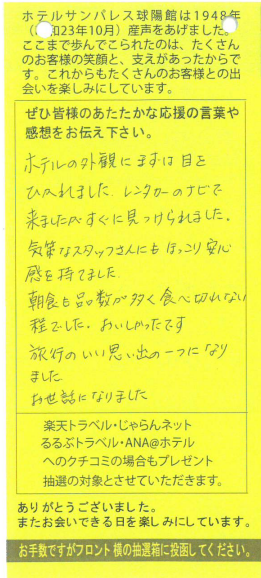 ホテルサンパレス球陽館は1948年
(和23年10月）産声をあげました。
ここまで歩んでこられたのは、たくさん
のお客様の笑顔と、支えがあったからで
す。これからもたくさんのお客様との出
会いを楽しみにしています。
ぜひ皆様のあたたかな応援の言葉や
感想をお伝え下さい。
ホテルの外観にまずは目を
ひかれました。レンタカーのナビで
来ましたがすぐに見つけられました。
気策なスタッフさんにもほっこり安心
感を持てました
朝食も品数が多く食べ切れない
程でした。おいしかったです
旅行のいい思い出の一つになり
ました
お世話になりました
楽天トラベル・じゃらんネット
るるぶトラベル・ANA@ホテル
へのクチコミの場合もプレゼント
抽選の対象とさせていただきます。
ありがとうございました。
またお会いできる日を楽しみにしています。
お手数ですがフロント横の抽選箱に投函してください。